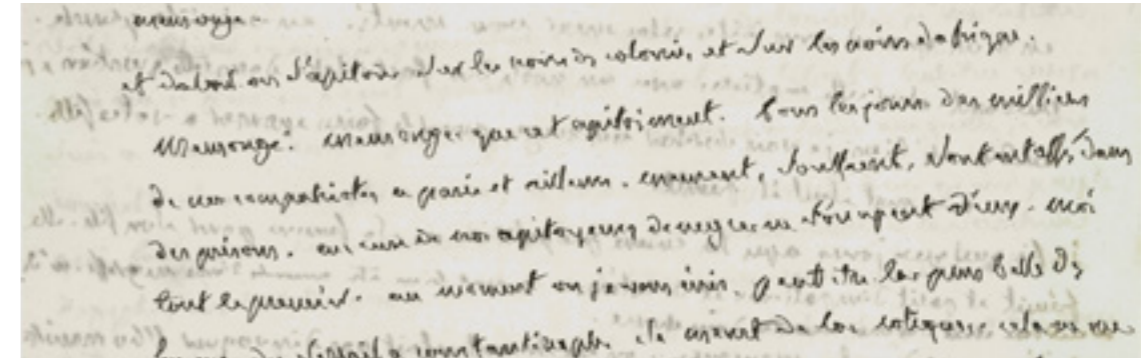 mensonge.
et d'abord on s'apitoie sur les noirs des colonies, et sur les noirs d'afrique.
Mensonge! mensonge que cet apitoiement. Tous les jours des milliers
de nos compatriotes a paris et ailleurs. meurent, souffrent, sont entassés dans
des prisons. aucun de nos apitoyeurs de negres ne s'occupent d'eux. moi
tout le premier. au moment ou je vous écris. peut être la plus belle des
a constantinople meurt de la cela me